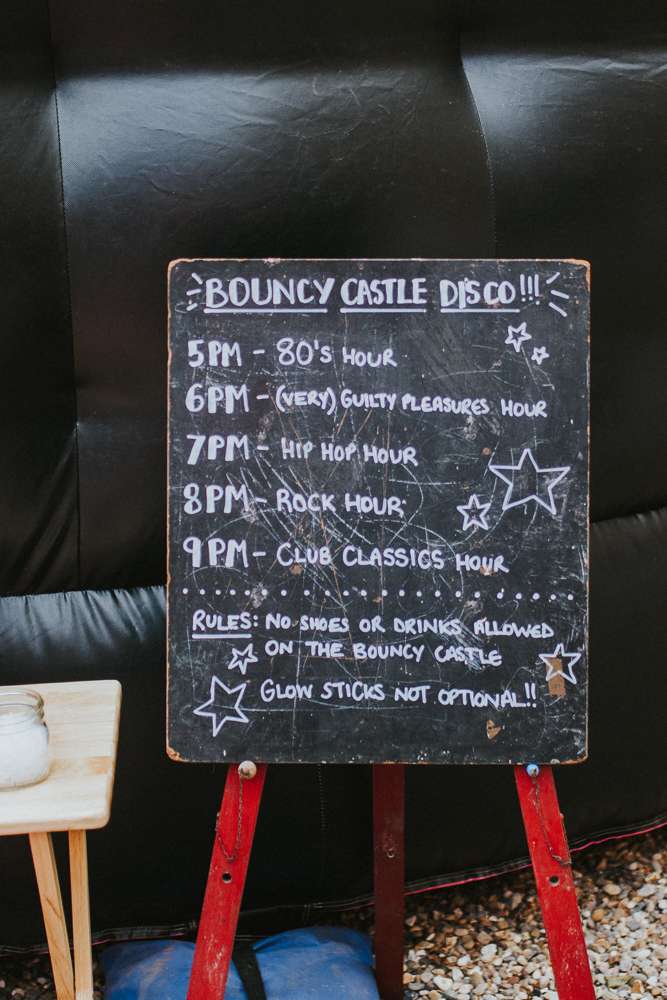 BOUNCY CASTLE DISCO!!!
5PM - 80's HOUR
6PM - (VERY) GUILTY PLEASURES HOUR
7PM - HIP HOP HOUR
8PM - ROCK HOUR
9PM - CLUB CLASSICS HOUR
RULES: NO SHOES OR DRINKS ALLOWED
ON THE BOUNCY CASTLE
GLOW STICKS NOT OPTIONAL!!